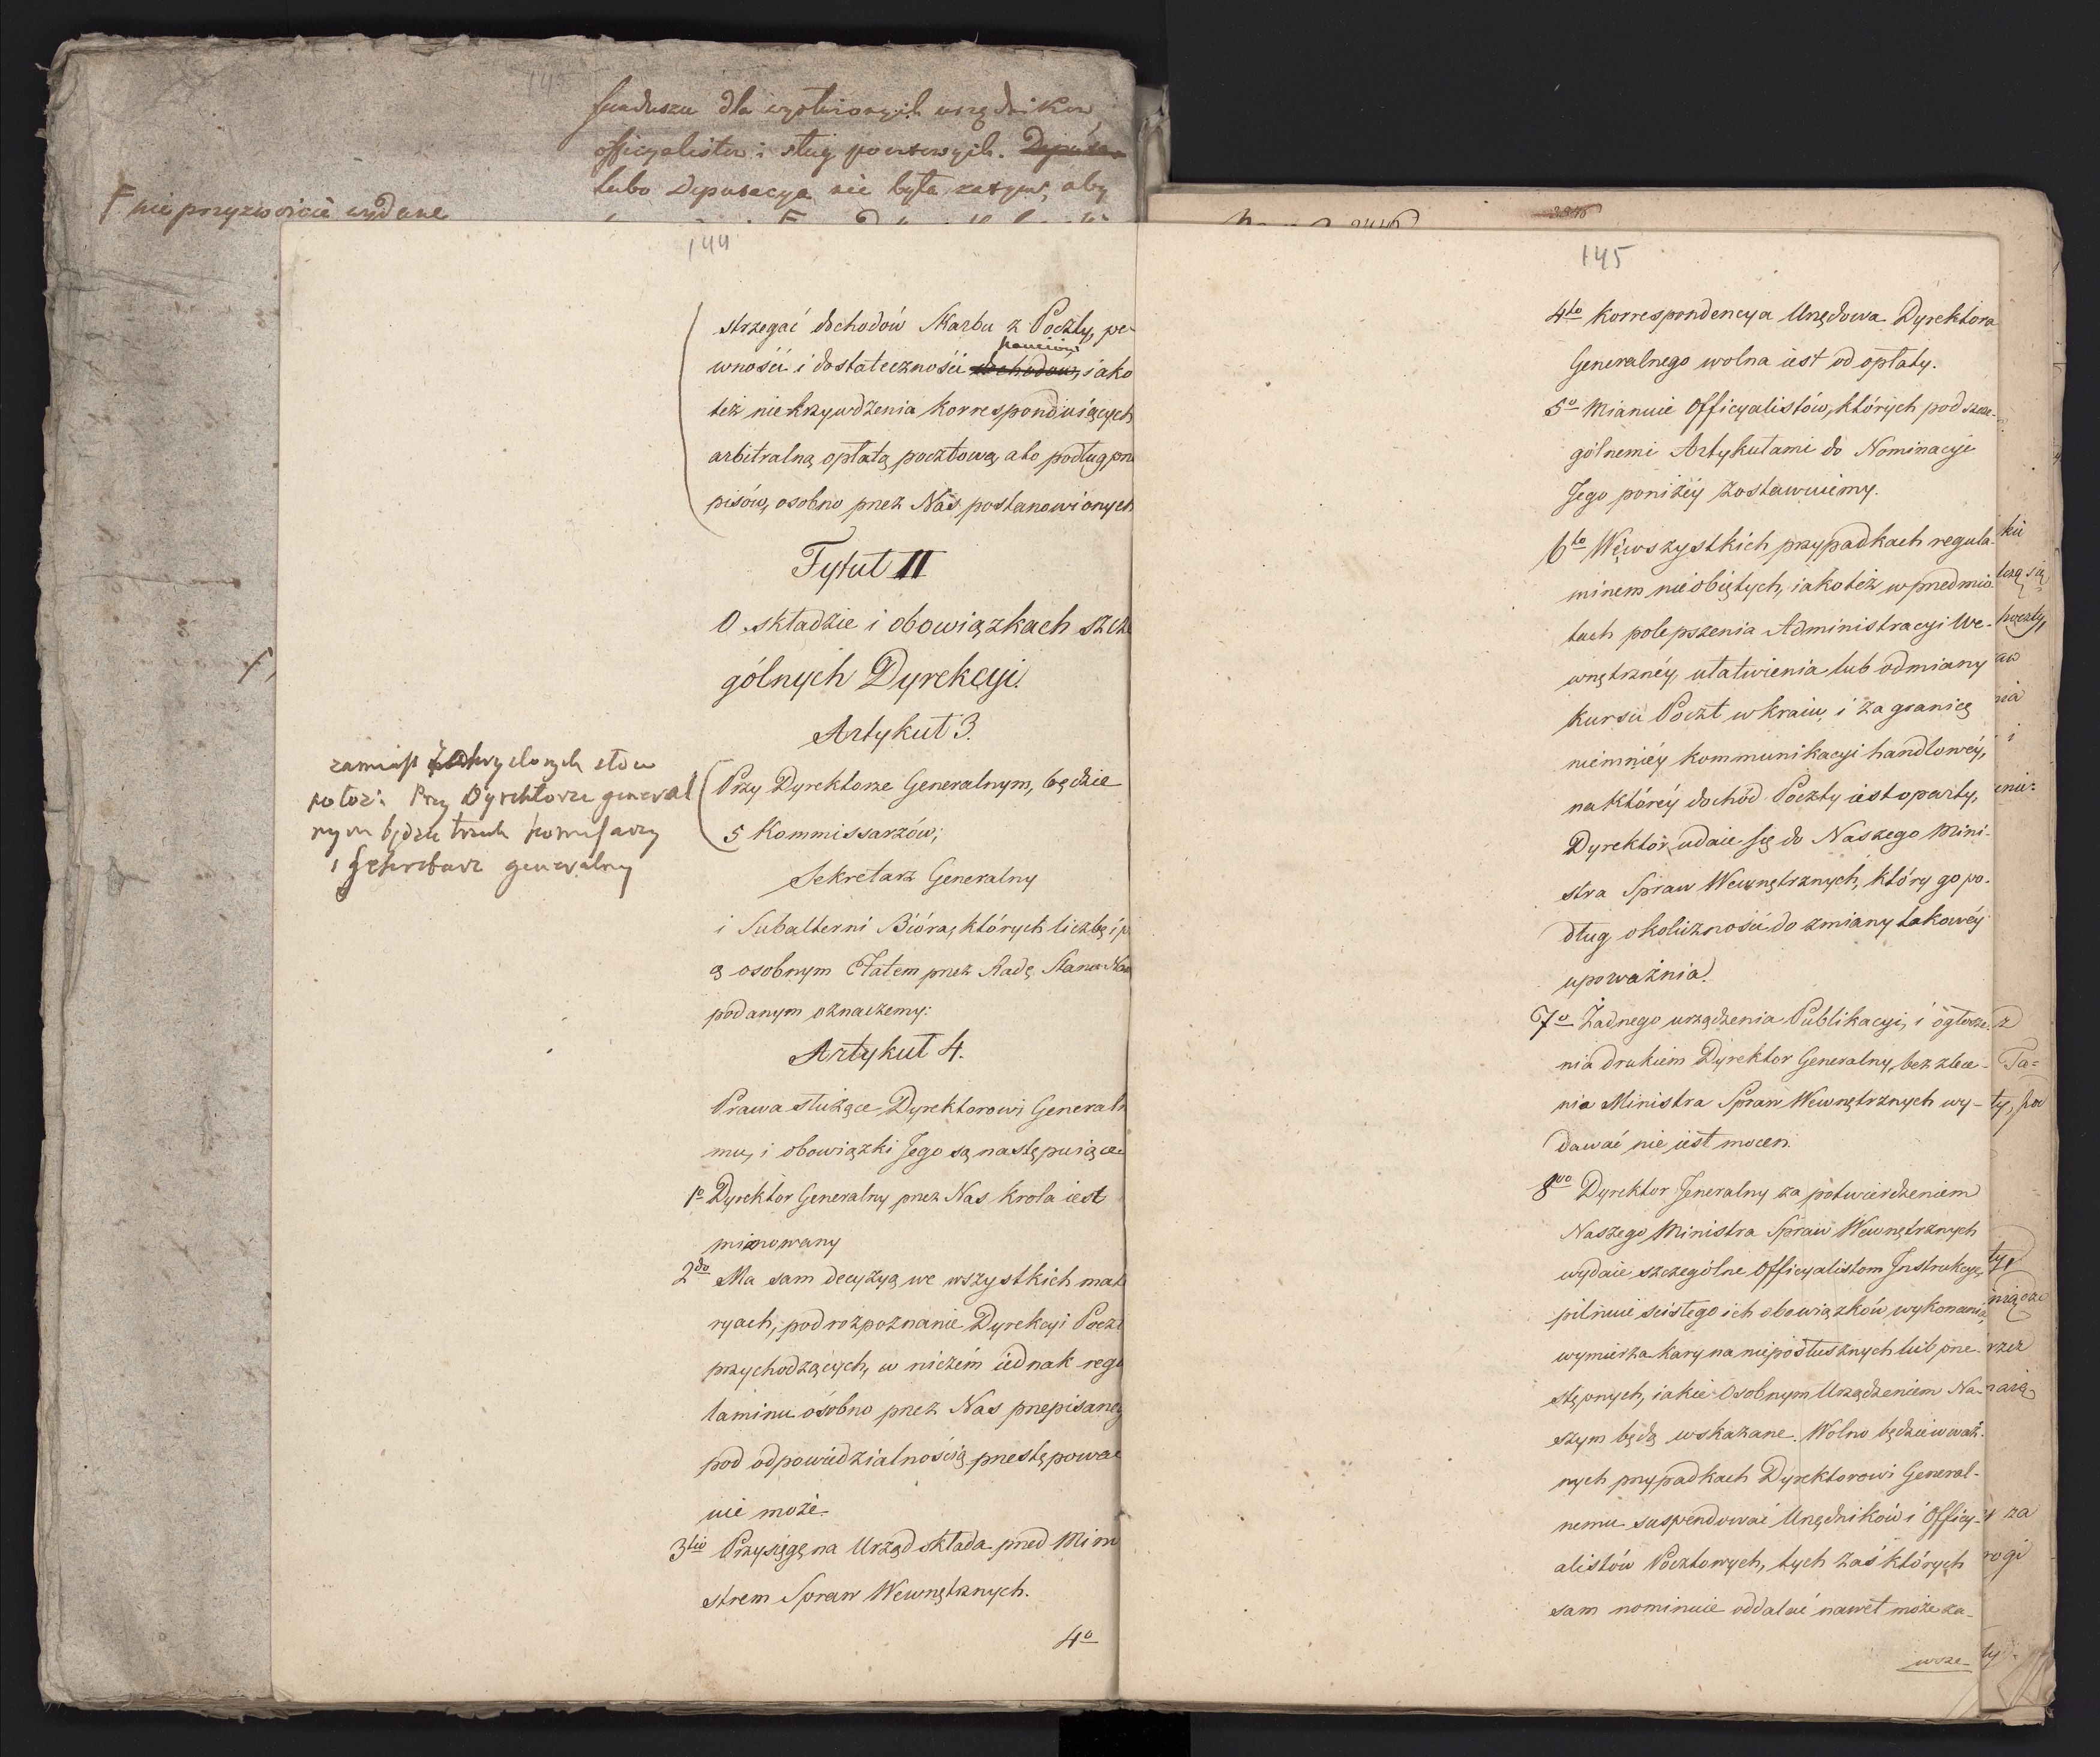 145
funduszu dla
officyalistów i sług pocztowych.
lubo Deputacya nie była aby
F nie przyzwoicie wydane
144
strzegać dochodów Skarbu z Poczty, pe-
kaucióy
wności i dostateczności dochodów, iako
też nie krzywdzenia korresponduiących
arbitralną opłatą pocztową, ato podług prze
pisów, osobno przez Nas postanowionych
Tytuł II
O składzie i obowiązkach szcze
gólnych Dyrekcyi.
Artykuł 3.
Przy Dyrektorze Generalnym, będzie
5 Kommissarzów;
zamiast zakryslonych słow
położ: Przy Dyrektorze general
nym będzie trzech komissarzy
i Sekretarz generalny
Sekretarz Generalny
i Subalterni Bióra, których liczbę i p
ę osobnym Etatem przez Radę Stanu Nam
podanym oznaczemy:
Artykuł 4.
Prawa służące Dyrektorowi Generaln
mu, i obowiązki Jego są następuiące
1o Dyrektor Generalny przez Nas Krola iest
mianowany
2do Ma sam decyzyą we wszystkich mate
ryach, pod rozpoznanie Dyrekcyi Poczt
przychodzących, w niczém iednak regu
laminu osobno przez Nas przepisaneg
pod odpowiedzialnością przestępować
nie może.
3tio Przysięgę na Urząd składa przed Mini
strem Spraw Wewnętrznych.
4o
145
4to Korrespondencya Urzędowa Dyrektora
Generalnego wolna iest od opłaty.
5o Mianuie Officyalistów, których pod szcze-
gólnemi Artykułami do Nominacyi
Jego poniżéy zostawuiemy.
6to We wszystkich przypadkach regula-
minem nie obiętych, iako też w przedmio-
tach polepszenia Administracyi We-
wnętrznéy, ułatwienia lub odmiany
kursu Poczt w kraiu, i za granicę
niemniéy kommunikacyi handlowéy,
na któréy dochód Poczty iest oparty,
Dyrektor udaie się do Naszego Mini-
stra Spraw Wewnętrznych, który go po-
dług okoliczności do zmiany takowéy
upoważnia.
7o Żadnego urządzenia Publikacyi, i ogłosze-
nia drukiem Dyrektor Generalny, bez zlece-
nia Ministra Spraw Wewnętrznych wy-
dawać nie iest mocen.
8vo Dyrektor Jeneralny za potwierdzeniem
Naszego Ministra Spraw Wewnętrznych
wydaie szczególne Officyalistom Instrukcye,
pilnuie scisłego ich obowiązków wykonania,
wymierza kary na nieposłusznych lub prze-
stępnych, iakie Osobnym Urządzeniem Na-
szym będą wskazane. Wolno będzie w waż-
nych przypadkach Dyrektorowi General-
nemu suspendować Urzędników i Officy-
alistów Pocztowych, tych zaś których
sam nominuie oddalać nawet może za-
wsze-